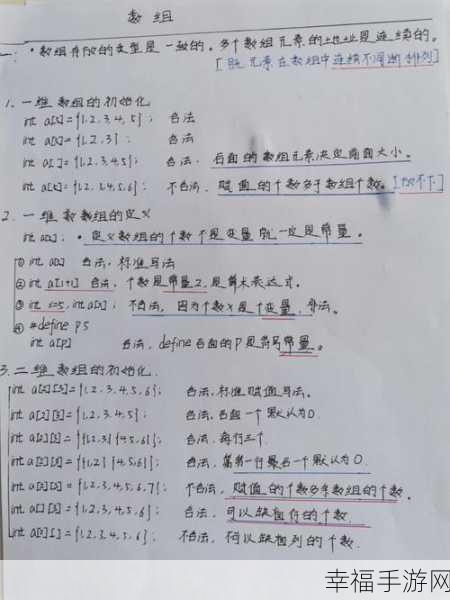 数组
一: • 数组存放的类型是一致的。多个数组元素的地址是连续的。
[即元素在数组中连续不间断排列]
1. 一维数组的初始化
int a[5]={1,2,3,4,5}; 合法
int a[5]={1,2,3}; 合法
int a[ ]={1,2,3,4,5}; 合法, 后面的数组元素决定前面大小。
int a[5]={1,2,3,4,5,6}; 不合法, 赋值的个数多于数组个数。[放不下]
2. 一维数组的定义
int a[5]; • 定义数组的个数不是变量就一定是常量。
① int a[5] 合法, 标准写法
② int a[1+1] 合法, 个数是常量2, 是算术表达式。
③ int x=5, int a[x]; 不合法, 因为个数x是个变量, 非法。
④ #define P 5
int a[P] 合法, define后面的P是符号常量。
3. 二维数组的初始化
int a[2][3]={1,2,3,4,5,6}; 合法, 标准赋值写法。
int a[2][3]={1,2,3,4,5}; 合法, 后面一个默认为0.
int a[2][3]={{1,2,3}{4,5,6}}; 合法, 每行三个.
int a[2][3]={{1,2}{4,5,6}}; 合法, 第一行最后一个默认为0.
int a[2][3]={1,2,3,4,5,6,7}; 不合法, 赋值的个数多于数组的个数。
int a[ ][3]={1,2,3,4,5,6}; 合法, 可以缺省行的个数.
int a[2][ ]={1,2,3,4,5,6}; 不合法, 不可以缺省列的个数.
幸福手游网